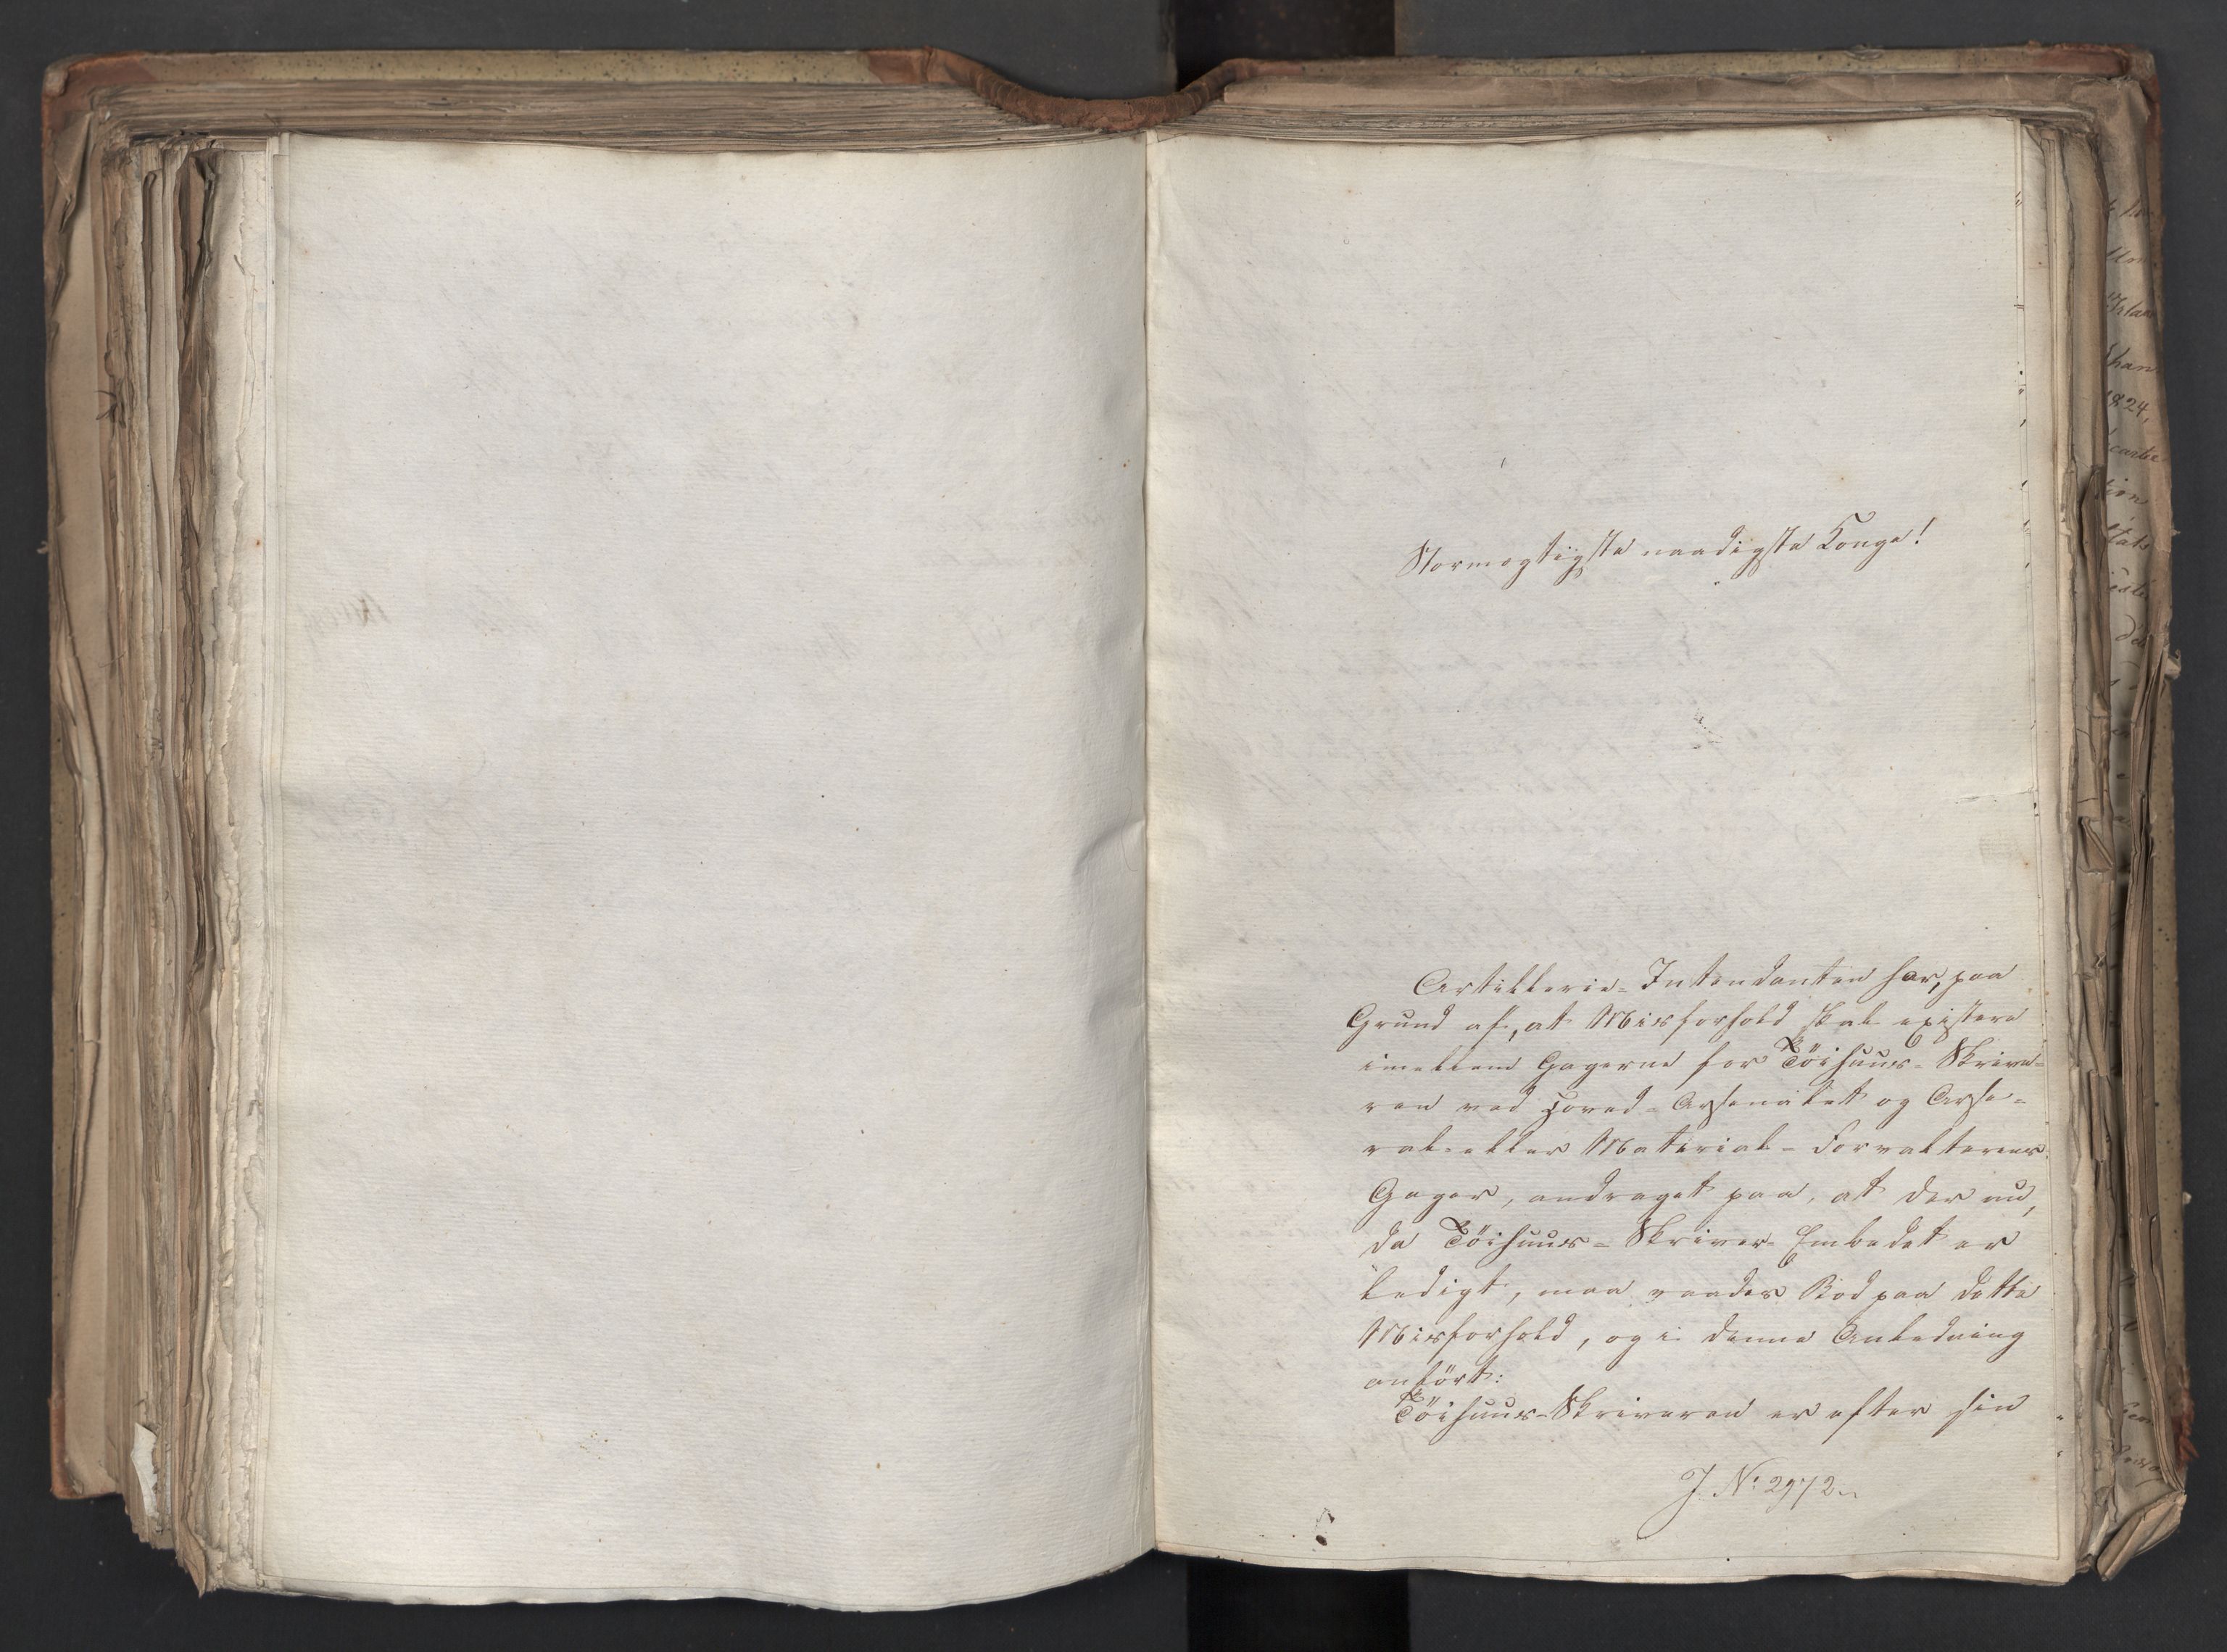 Stormægtigste naadigste Konge!
Artillerie-Intendanten har, paa
Grund af, at Misforhold skal existere
imellem Gagerne for Töihuus-Skrive-
ren ved Hoved-Arsenalet og Arse-
nal- eller Material-Forvalternes
Gager, andraget paa, at der nu,
da Töihuus-Skriver-Embedet er
ledigt, maa raades Bod paa dette
Misforhold, og i denne Anledning
anfört:
Töihuus-Skriveren er efter sin
J. No: 2972.
han
1824,